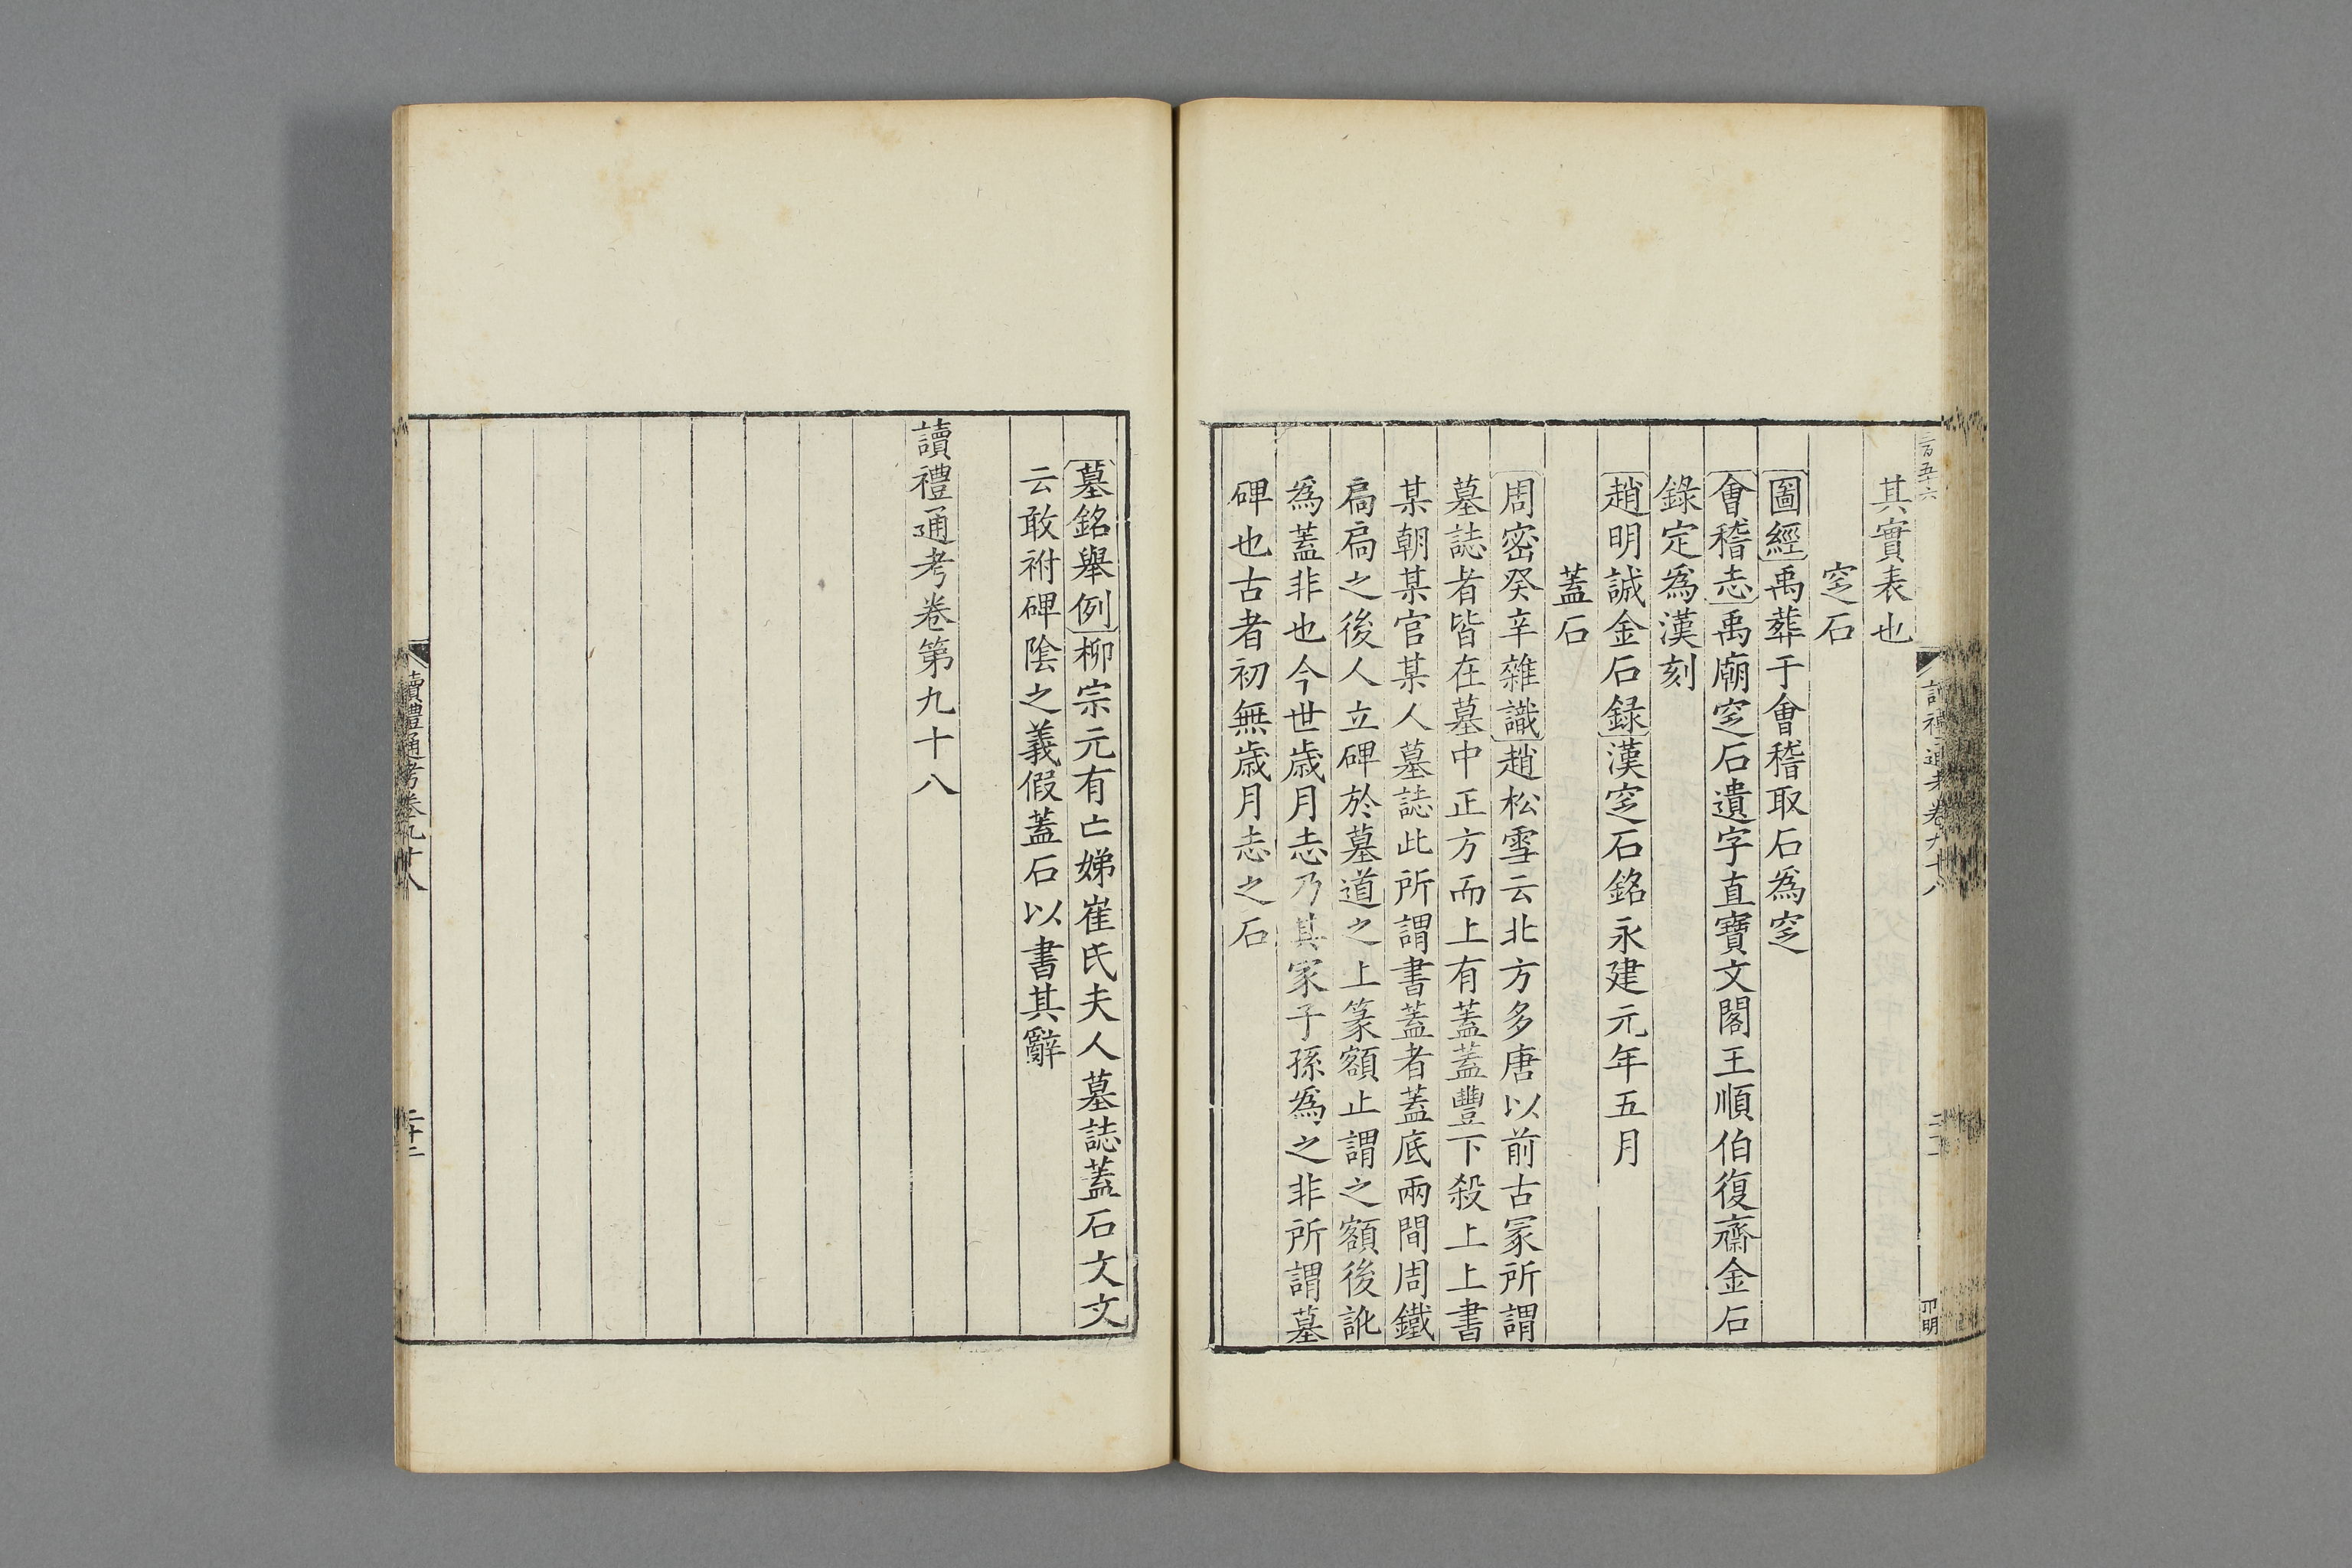 其實表也
窆石
圖經禹葬于會稽取石為窆
會稽志禹廟窆石遺字直寶文閣王順伯復齋金石
錄定為漢刻
趙明誠金石録漢窆石銘永建元年五月
蓋石
周密癸辛雜識趙松雪云北方多唐以前古冡所謂
墓誌者皆在墓中正方而上有蓋蓋豐下殺上上書
某朝某官某人墓誌此所謂書蓋者蓋底兩間周鐵
扃扃之後人立碑於墓道之上篆額止謂之額後訛
為蓋非也今世歳月志乃其冡子孫為之非所謂墓
碑也古者初無歳月志之石
墓銘舉例柳宗元有亡娣崔氏夫人墓誌蓋石文文
云敢祔碑陰之義假蓋石以書其辭
讀禮通考卷第九十八
讀禮通考卷九十八
二十二